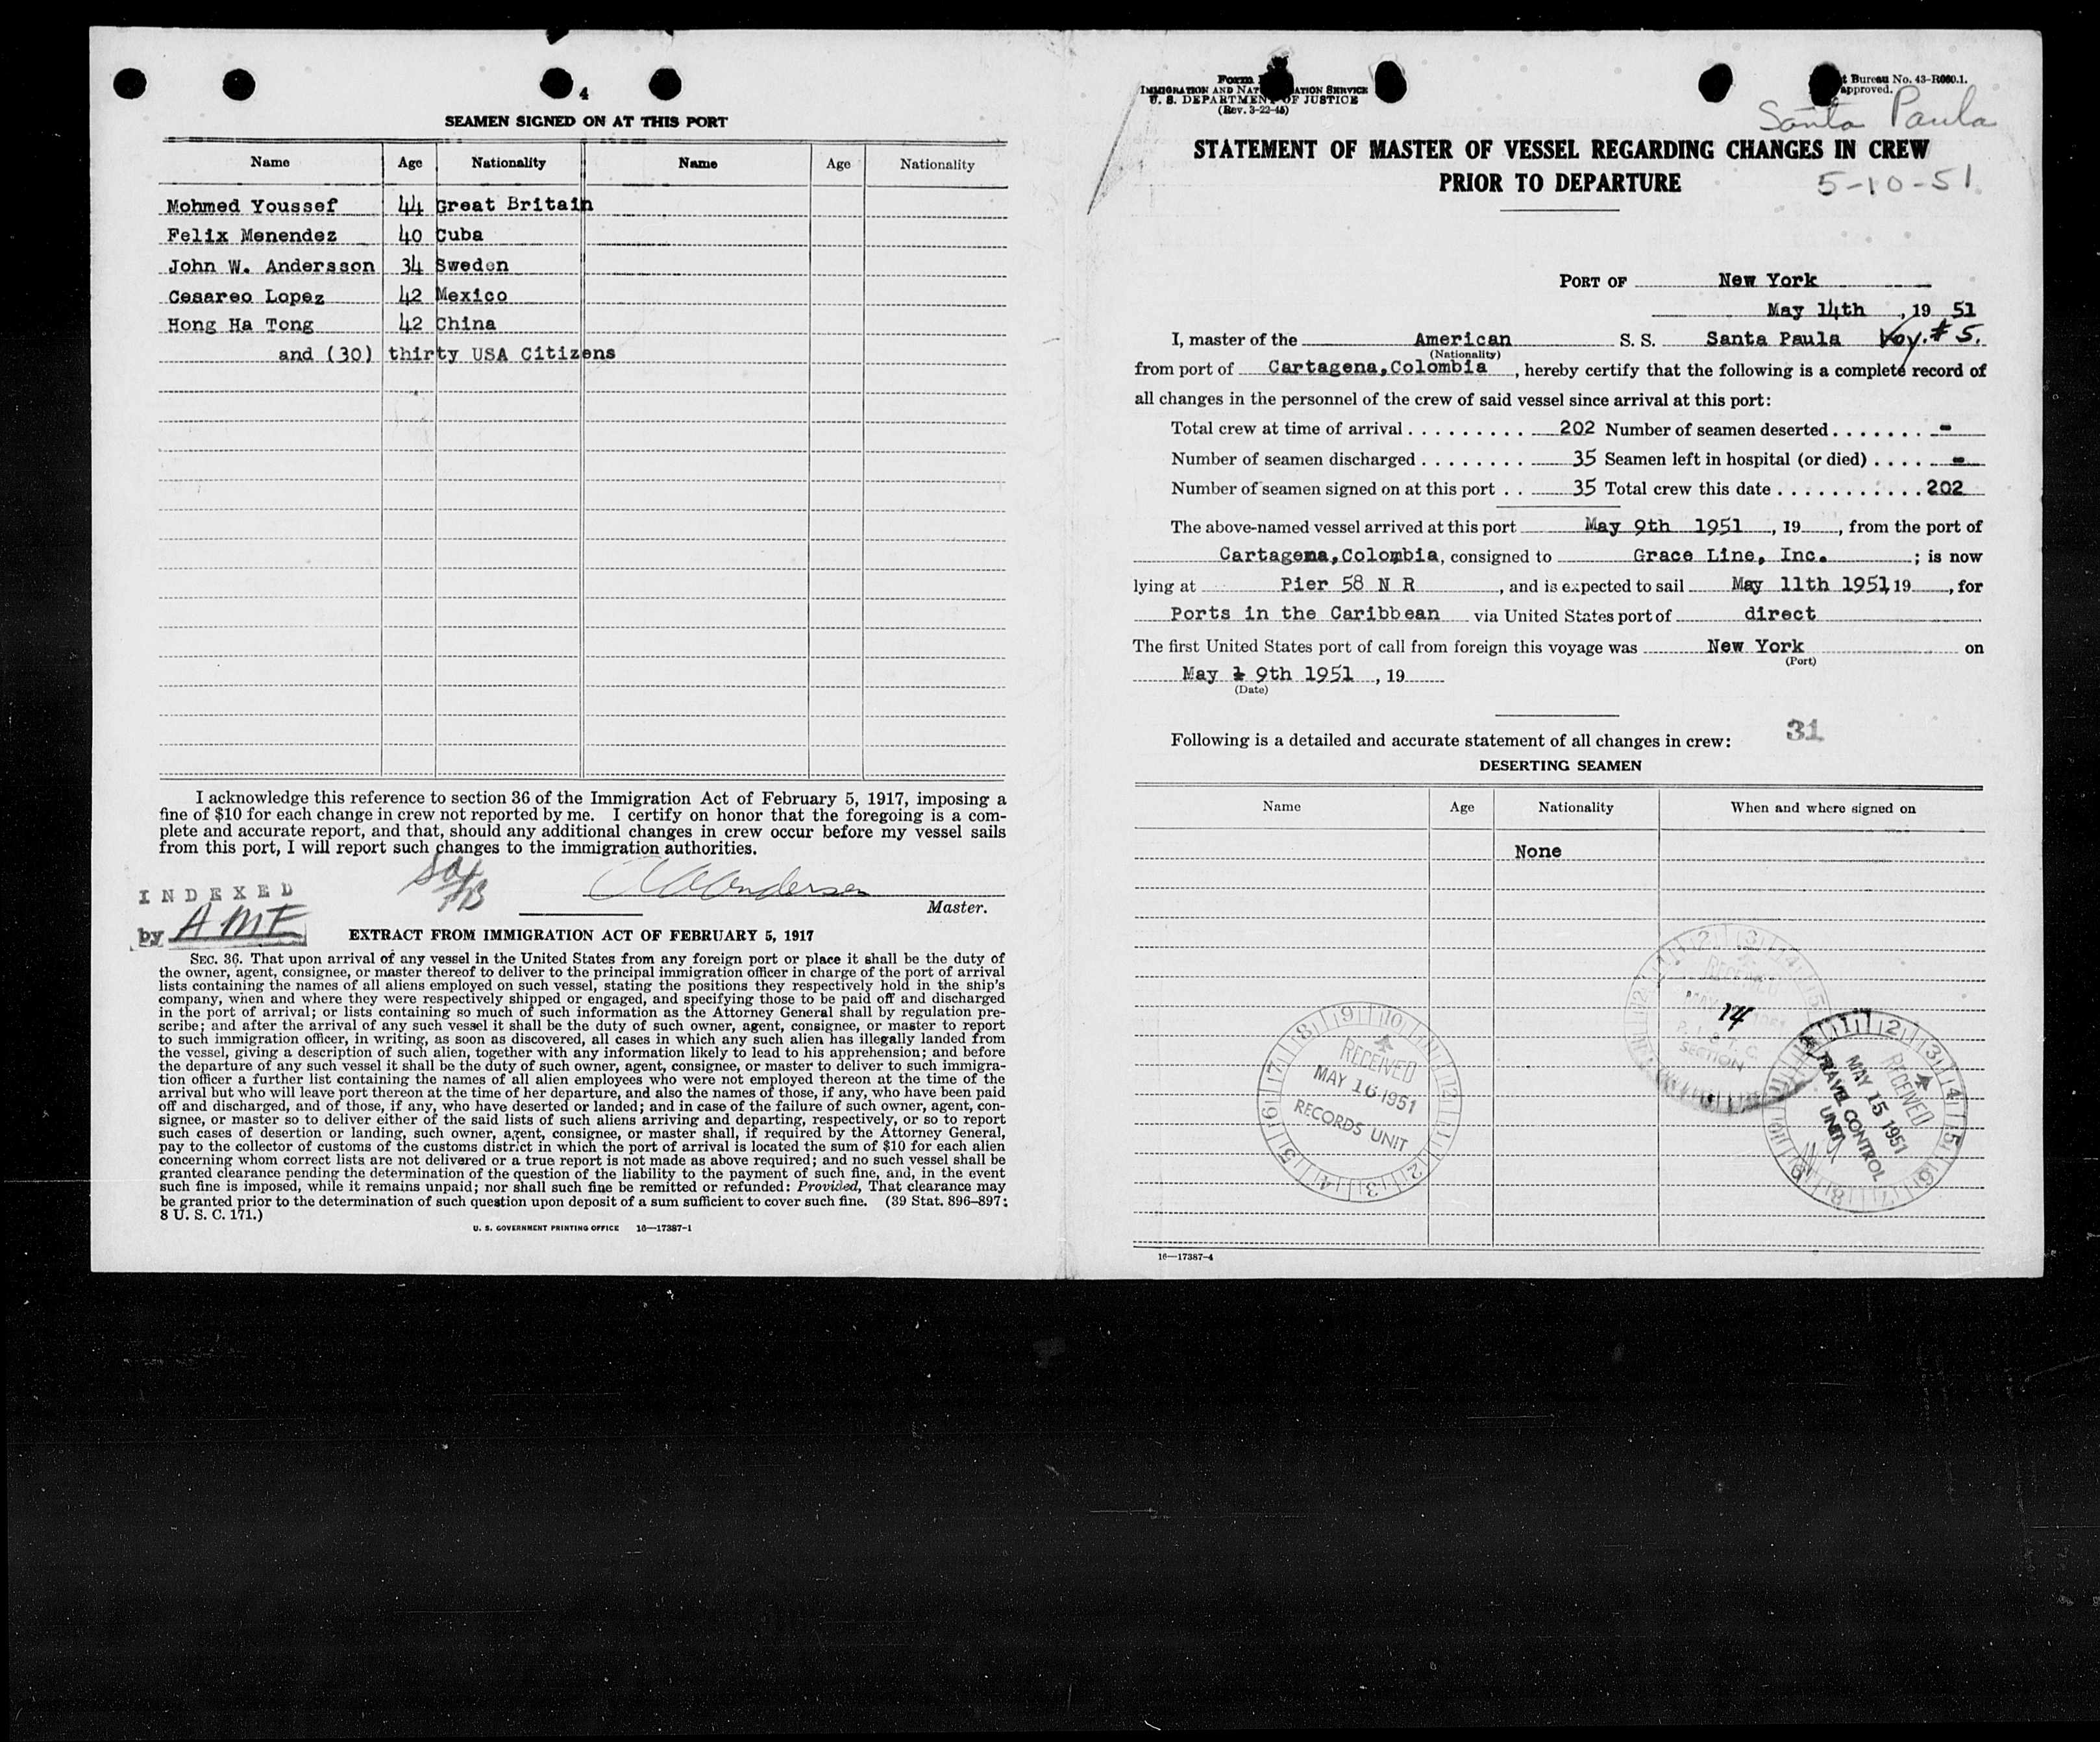 4
SEAMEN SIGNED ON AT THIS PORT
Name Age Nationality Name Age Nationality
Mohmed Youssef 44 Great Britain
Felix Menendez 40 Cuba
John W. Andersson 34 Sweden
Cesareo Lopez 42 Mexico
Hong Ha Tong 42 China
and (30) thirty USA Citizens
I acknowledge this reference to section 36 of the Immigration Act of February 5, 1917, imposing a
fine of $10 for each change in crew not reported by me. I certify on honor that the foregoing is a com-
plete and accurate report, and that, should any additional changes in crew occur before my vessel sails
from this port, I will report such changes to the immigration authorities.
INDEXED
by AMF
Andersen
Master.
EXTRACT FROM IMMIGRATION ACT OF FEBRUARY 5, 1917
SEC. 36. That upon arrival of any vessel in the United States from any foreign port or place it shall be the duty of
the owner, agent, consignee, or master thereof to deliver to the principal immigration officer in charge of the port of arrival
lists containing the names of all aliens employed on such vessel, stating the positions they respectively hold in the ship's
company, when and where they were respectively shipped or engaged, and specifying those to be paid off and discharged
in the port of arrival; or lists containing so much of such information as the Attorney General shall by regulation pre-
scribe; and after the arrival of any such vessel it shall be the duty of such owner, agent, consignee, or master to report
to such immigration officer, in writing, as soon as discovered, all cases in which any such alien has illegally landed from
the vessel, giving a description of such alien, together with any information likely to lead to his apprehension; and before
the departure of any such vessel it shall be the duty of such owner, agent, consignee, or master to deliver to such immigra-
tion officer a further list containing the names of all alien employees who were not employed thereon at the time of the
arrival but who will leave port thereon at the time of her departure, and also the names of those, if any, who have been paid
off and discharged, and of those, if any, who have deserted or landed; and in case of the failure of such owner, agent, con-
signee, or master so to deliver either of the said lists of such aliens arriving and departing, respectively, or so to report
such cases of desertion or landing, such owner, agent, consignee, or master shall, if required by the Attorney General,
pay to the collector of customs of the customs district in which the port of arrival is located the sum of $10 for each alien
concerning whom correct lists are not delivered or a true report is not made as above required; and no such vessel shall be
granted clearance pending the determination of the question of the liability to the payment of such fine, and, in the event
such fine is imposed, while it remains unpaid; nor shall such fine be remitted or refunded: Provided, That clearance may
be granted prior to the determination of such question upon deposit of a sum sufficient to cover such fine. (39 Stat. 896-897;
8 U. S. C. 171.)
U. S. GOVERNMENT PRINTING OFFICE 16—17387-1
Form
IMMIGRATION AND NAT ATION SERVICE
U. S. DEPARTMENT OF JUSTICE
(Rev. 3-22-45)
t Bureau No. 43-R060.1.
approved.
Santa Paula
STATEMENT OF MASTER OF VESSEL REGARDING CHANGES IN CREW
PRIOR TO DEPARTURE
5-10-51
PORT OF New York
May 14th, 19 51
I, master of the American S. S. Santa Paula Voy. # 5.
(Nationality)
from port of Cartagena, Colombia, hereby certify that the following is a complete record of
all changes in the personnel of the crew of said vessel since arrival at this port:
Total crew at time of arrival . . . . . . . . . . 202 Number of seamen deserted . . . . . . . -
Number of seamen discharged . . . . . . . . 35 Seamen left in hospital (or died) . . . . -
Number of seamen signed on at this port . . 35 Total crew this date . . . . . . . . . . . 202
The above-named vessel arrived at this port May 9th 1951, 19, from the port of
Cartagena, Colombia, consigned to Grace Line, Inc. ; is now
lying at Pier 58 N R, and is expected to sail May 11th 1951, 19, for
Ports in the Caribbean via United States port of direct
The first United States port of call from foreign this voyage was New York on
(Port)
May 9th 1951, 19
(Date)
31
Following is a detailed and accurate statement of all changes in crew:
DESERTING SEAMEN
Name Age Nationality When and where signed on
None
RECEIVED
14
SECTION
RECEIVED
MAY 16 1951
RECORDS UNIT
RECEIVED
MAY 15 1951
TRAVEL CONTROL
UNIT
16—17387-4